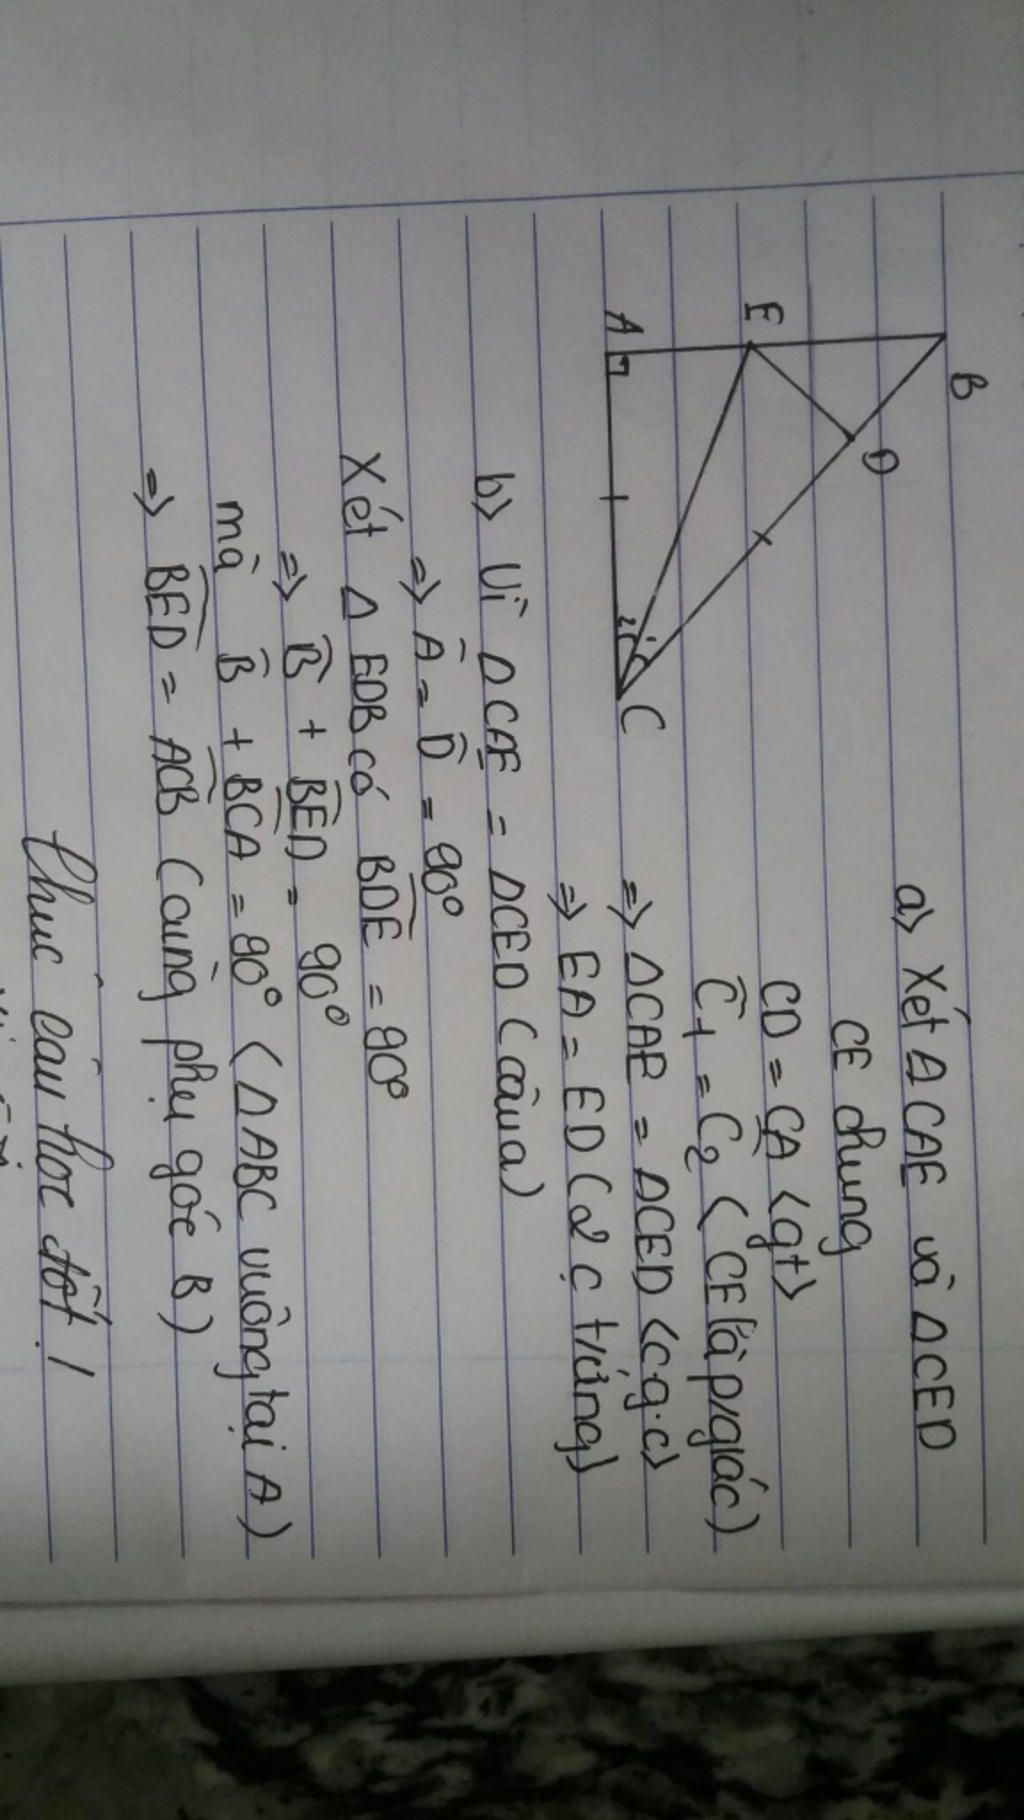 B
E
D
A
C
1
2
a) Xét ΔCAE và ΔCED
CE chung
CD = CA (gt)
Ĉ1 = Ĉ2 (CE là p/giác)
=> ΔCAE = ΔCED (c.g.c)
=> EA = ED (2 c t/ứng)
b) Vì ΔCAE = ΔCED (câu a)
=> Â = D̂ = 90°
Xét Δ EDB có B͡DE = 90°
=> B̂ + B͡ED = 90°
mà B̂ + B͡CA = 90° (ΔABC vuông tại A)
=> B͡ED = A͡CB (cùng phụ góc B)
Chúc cậu học tốt!